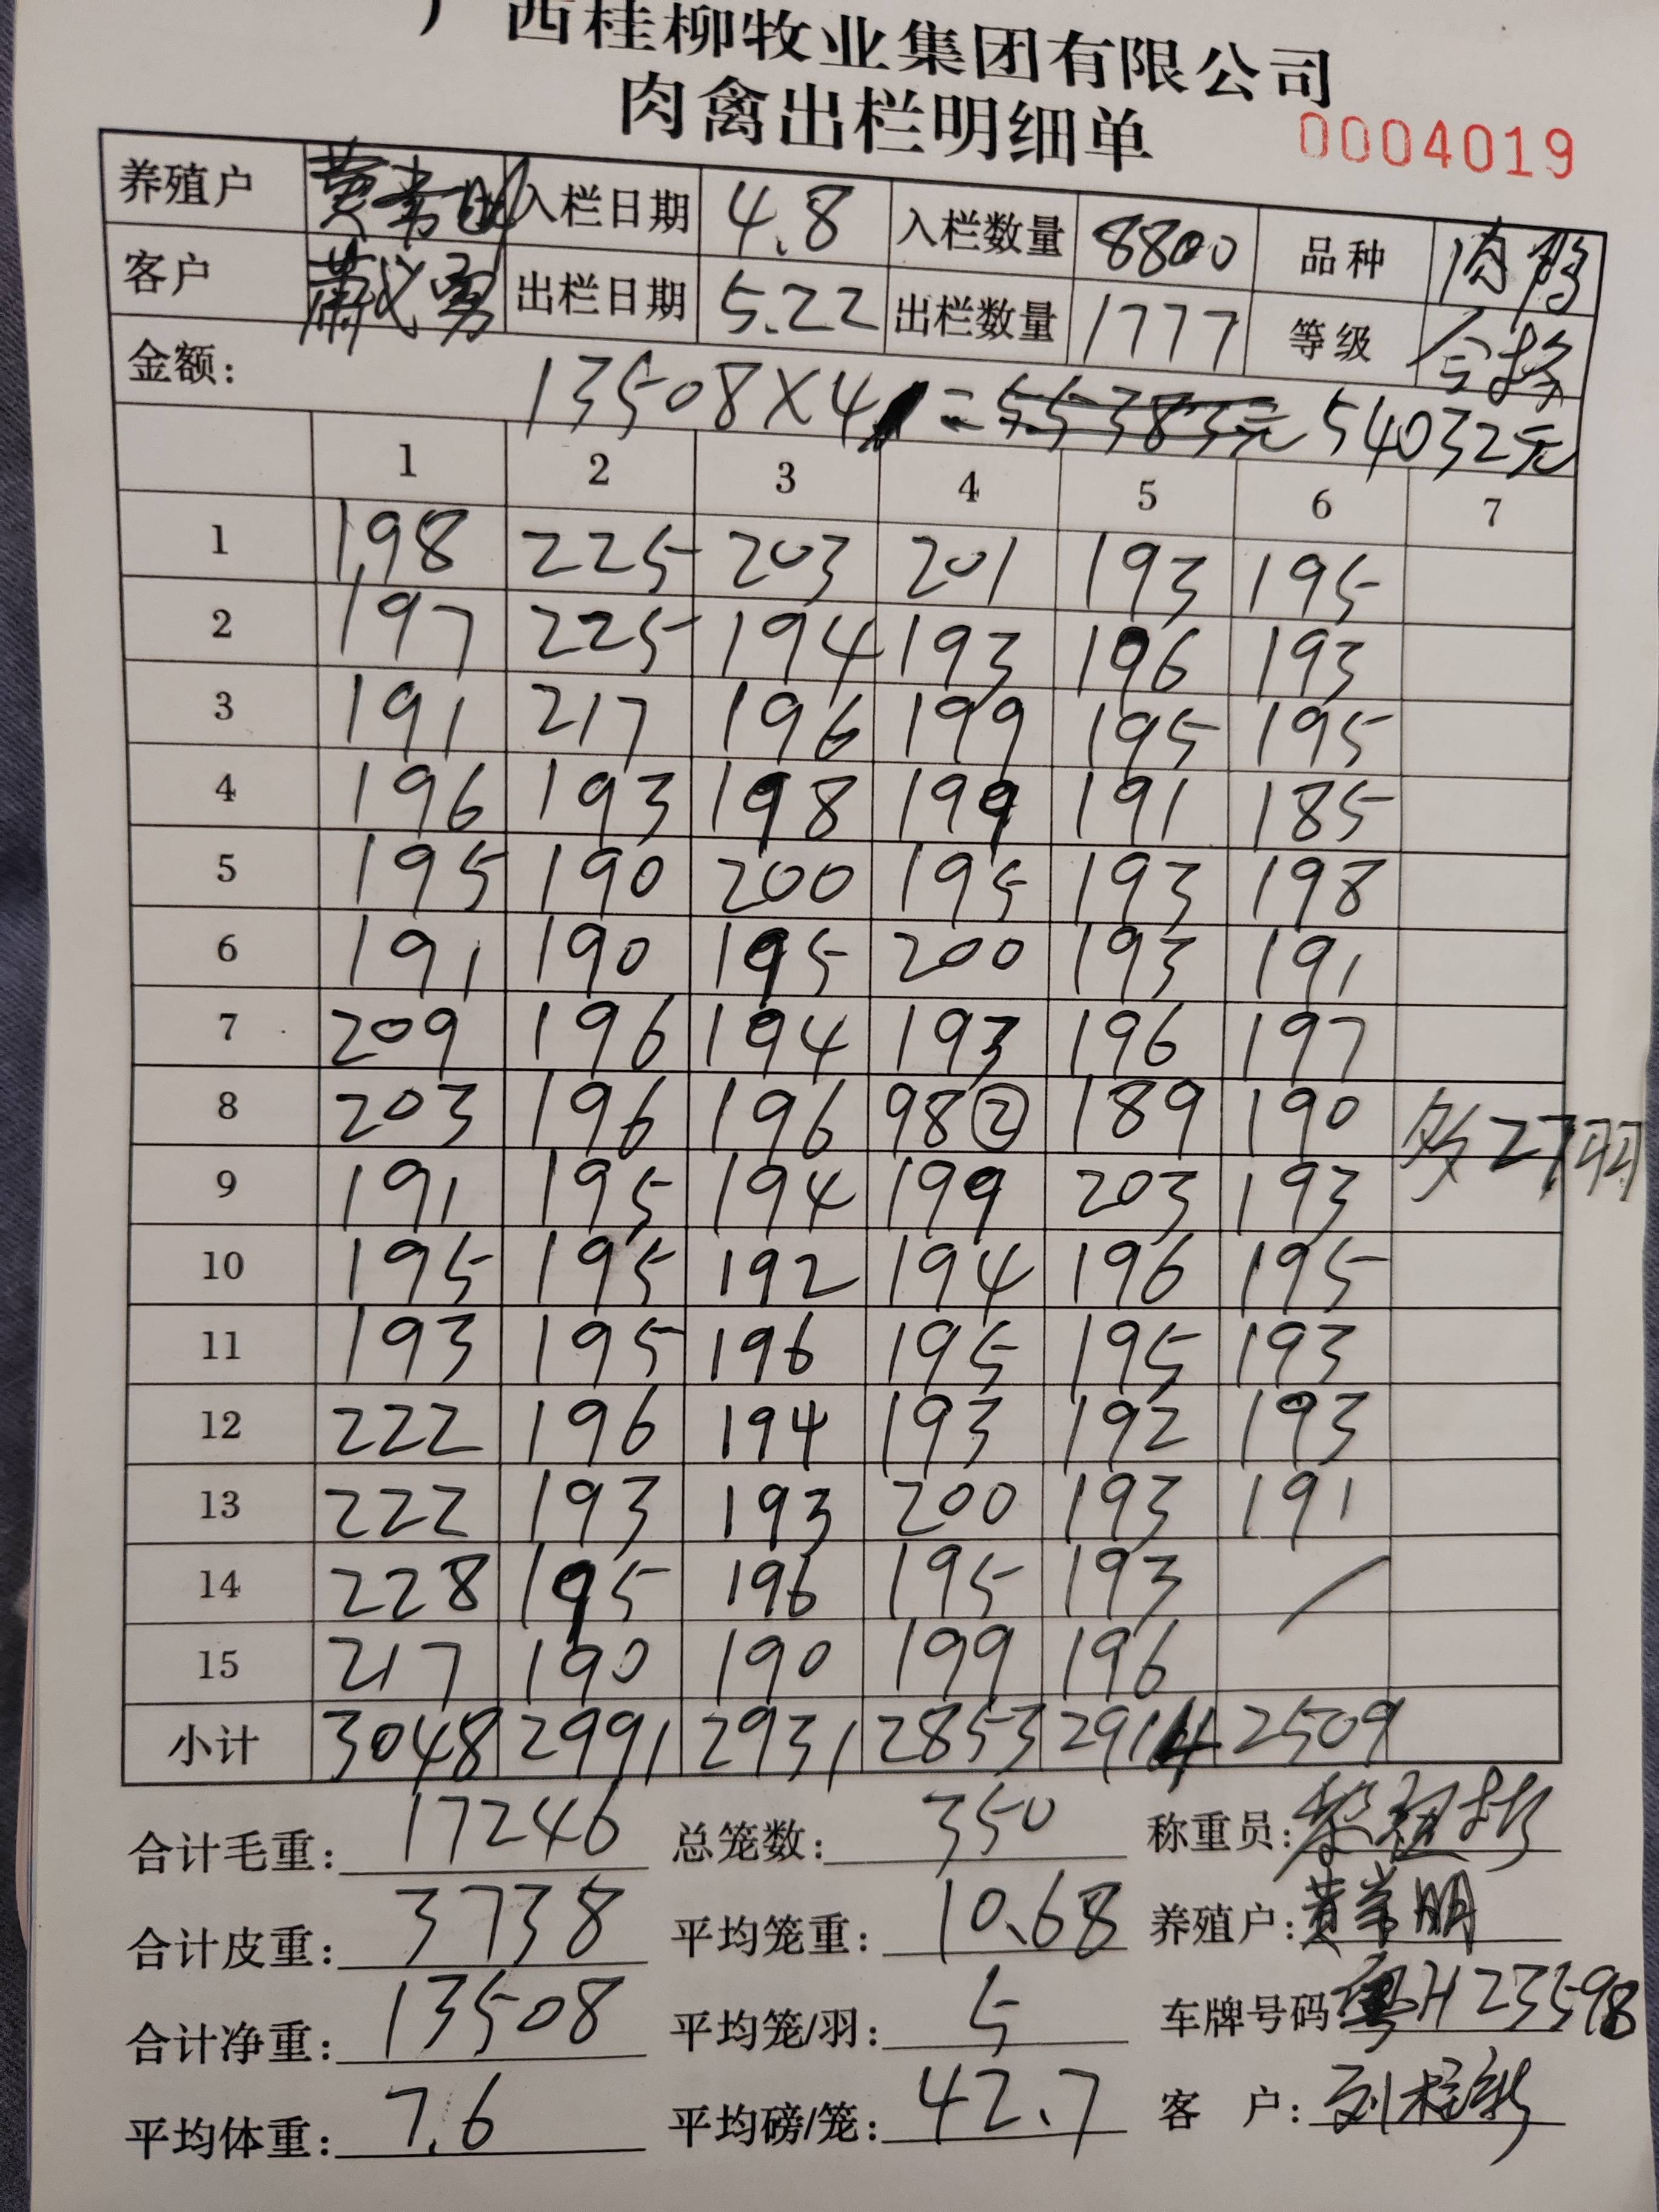 广西桂柳牧业集团有限公司
肉禽出栏明细单 0004019
养殖户 黄 入栏日期 4.8 入栏数量 8800 品种 肉鸭
客户 萧 勇 出栏日期 5.22 出栏数量 1777 等级 合格
金额: 13508×4 = 55383元 54032元
1 2 3 4 5 6 7
1 198 225 203 201 193 195
2 197 225 194 193 196 193
3 191 217 196 199 195 195
4 196 193 198 199 191 185
5 195 190 200 195 193 198
6 191 190 195 200 193 191
7 209 196 194 193 196 197
8 203 196 196 98② 189 190 多27羽
9 191 195 194 199 203 193
10 195 195 192 194 196 195
11 193 195 196 195 195 193
12 222 196 194 193 192 193
13 222 193 193 200 193 191
14 228 195 196 195 193
15 217 190 190 199 196
小计 3048 2991 2931 2853 2914 2509
合计毛重: 17246 总笼数: 350 称重员:
合计皮重: 3738 平均笼重: 10.68 养殖户: 黄 明
合计净重: 13508 平均笼/羽: 5 车牌号码 粤H23598
平均体重: 7.6 平均磅/笼: 42.7 客 户: 刘